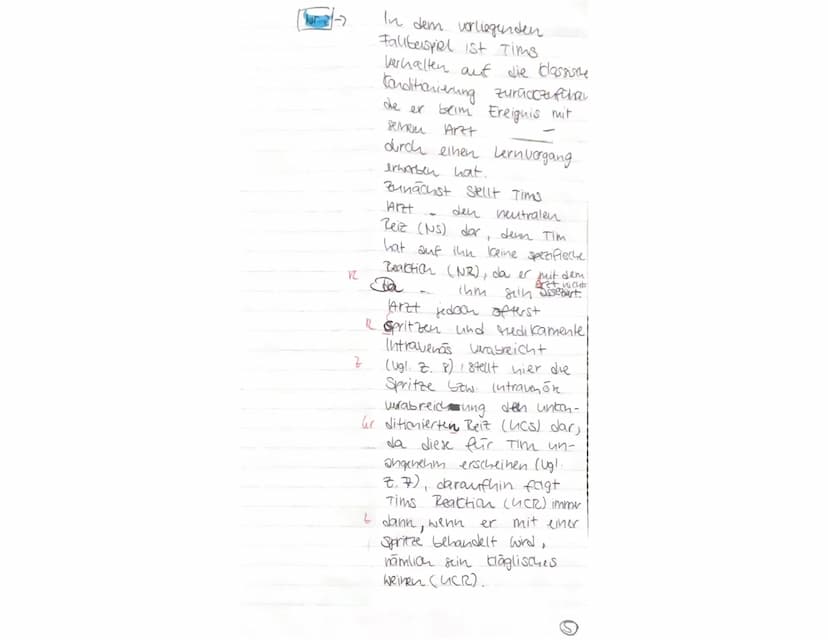 Nr. 2 →
In dem vorliegenden
Fallbeispiel ist Tims
Verhalten auf die klassische
Konditionierung zurückzuführen
die er beim Ereignis mit
seinem Arzt
durch einen Lernvorgang
erworben hat.
Zunächst stellt Tims
Arzt - den neutralen
Reiz (NS) dar, denn Tim
hat auf ihn keine spezifische
Reaktion (NR), da er mit dem
Arzt nicht
R Da - ihm sein
Arzt jedoch öfterst
R Spritzen und Medikamente
Intravenös verabreicht
Z (vgl. Z. 8), stellt hier die
Spritze bzw. intravenöse
verabreichung den unkon-
Gr ditionierten Reiz (UCS) dar,
da diese für Tim un-
angenehm erscheinen (vgl.
Z. 7), daraufhin folgt
Tims Reaktion (UCR) immer
dann, wenn er mit einer
Spritze behandelt wird,
nämlich sein klägliches
Weinen (UCR).
5